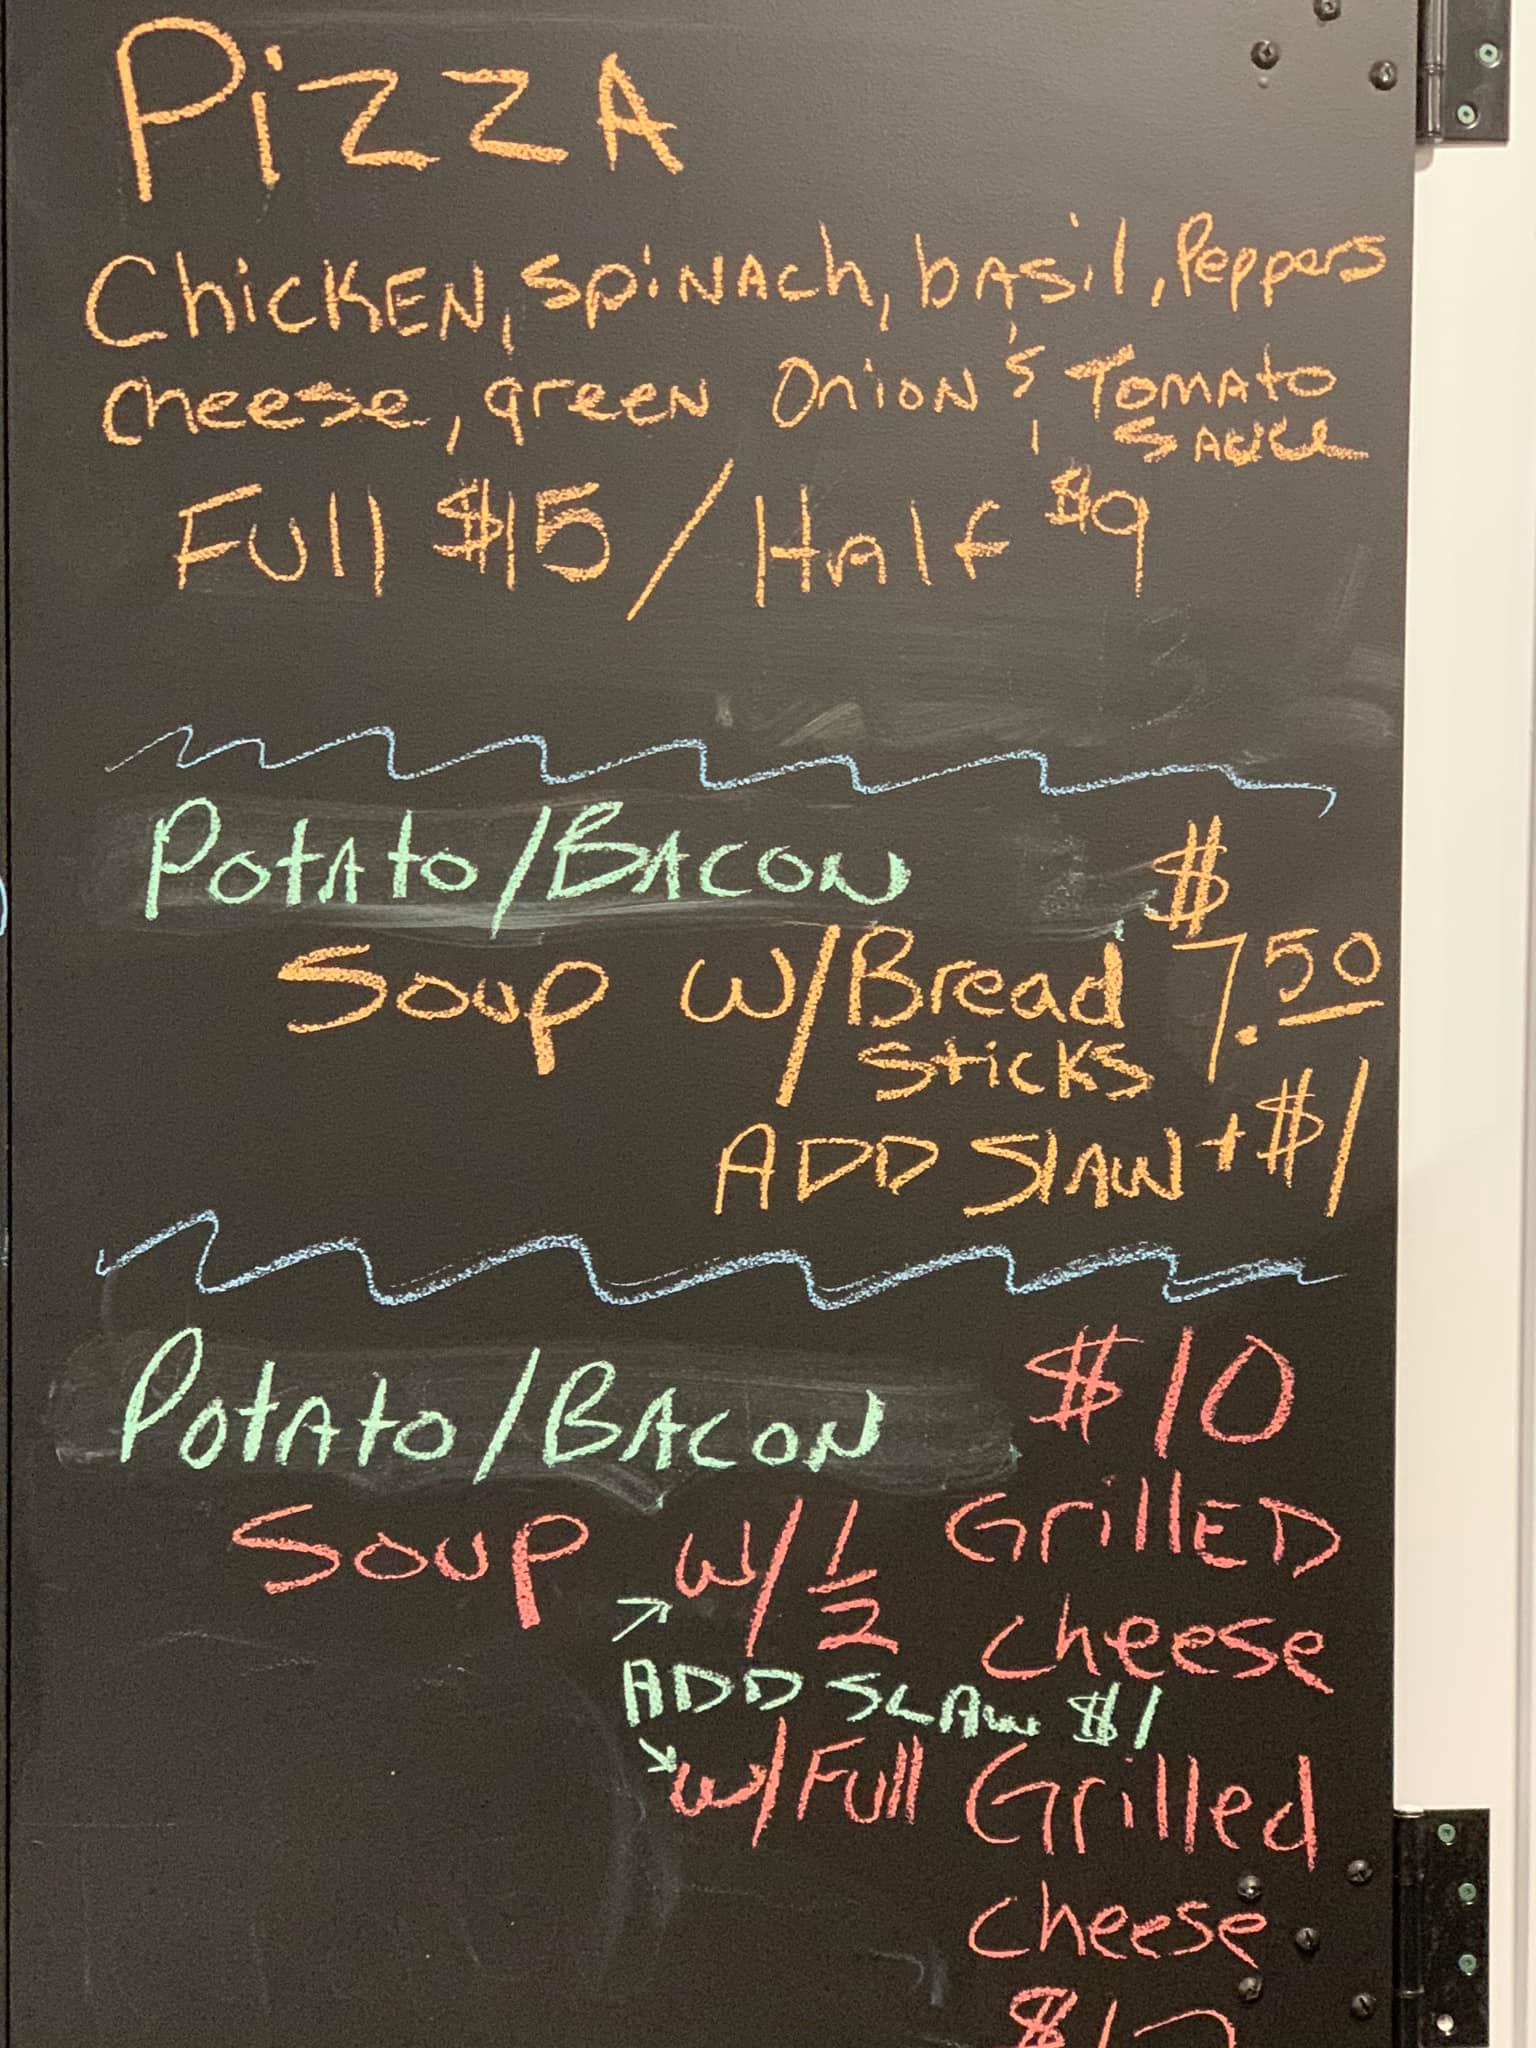 PizzA
ChicKEN, spiNAch, bAsil, Peppers
cheese, green Onion's, TOMATO
SAUCE
Full $15 / HAlf $9
PotAto/BACON
$
Soup w/Bread 7.50
SticKs
ADD SlAW + $1
PotAto/BACON $10
Soup w/ 1/2 GrillED
cheese
ADD SLAW $1
w/Full Grilled
cheese